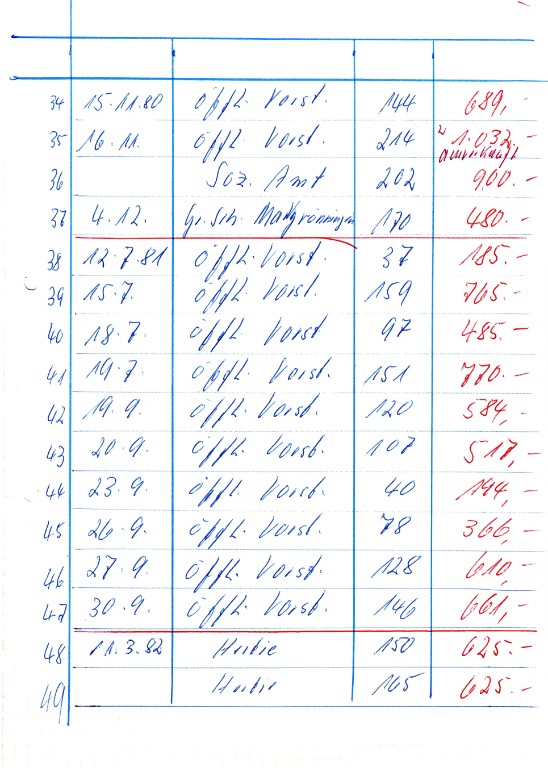 34 15.11.80 öfftl. Vorst. 144 689,-
35 16.11. öfftl. Vorst. 214 1.032.-
ausverkauft
36 Soz. Amt 202 900.-
37 4.12. Gr. Sch. 170 480.-
38 12.7.81 öfftl. Vorst. 37 185.-
39 15.7. öfftl. Vorst. 159 765.-
40 18.7. öfftl. Vorst 97 485.-
41 19.7. öfftl. Vorst. 151 770.-
42 19.9. öfftl. Vorst. 120 584,-
43 20.9. öfftl. Vorst. 107 517,-
44 23.9. öfftl. Vorst. 40 194,-
45 26.9. öfftl. Vorst. 78 366,-
46 27.9. öfftl. Vorst. 128 610,-
47 30.9. öfftl. Vorst. 146 661,-
48 11.3.82 Herbie 150 625.-
49 Herbie 165 625.-